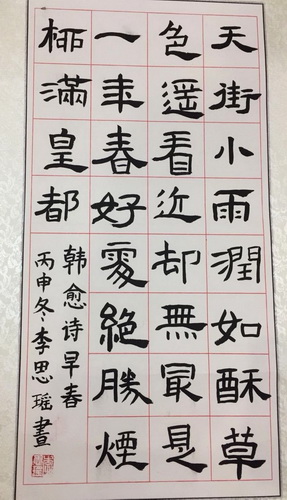 天街小雨潤如酥草
色遥看近却無最是
一年春好處絶勝煙
柳滿皇都
韩愈诗早春
丙申冬李思瑶書